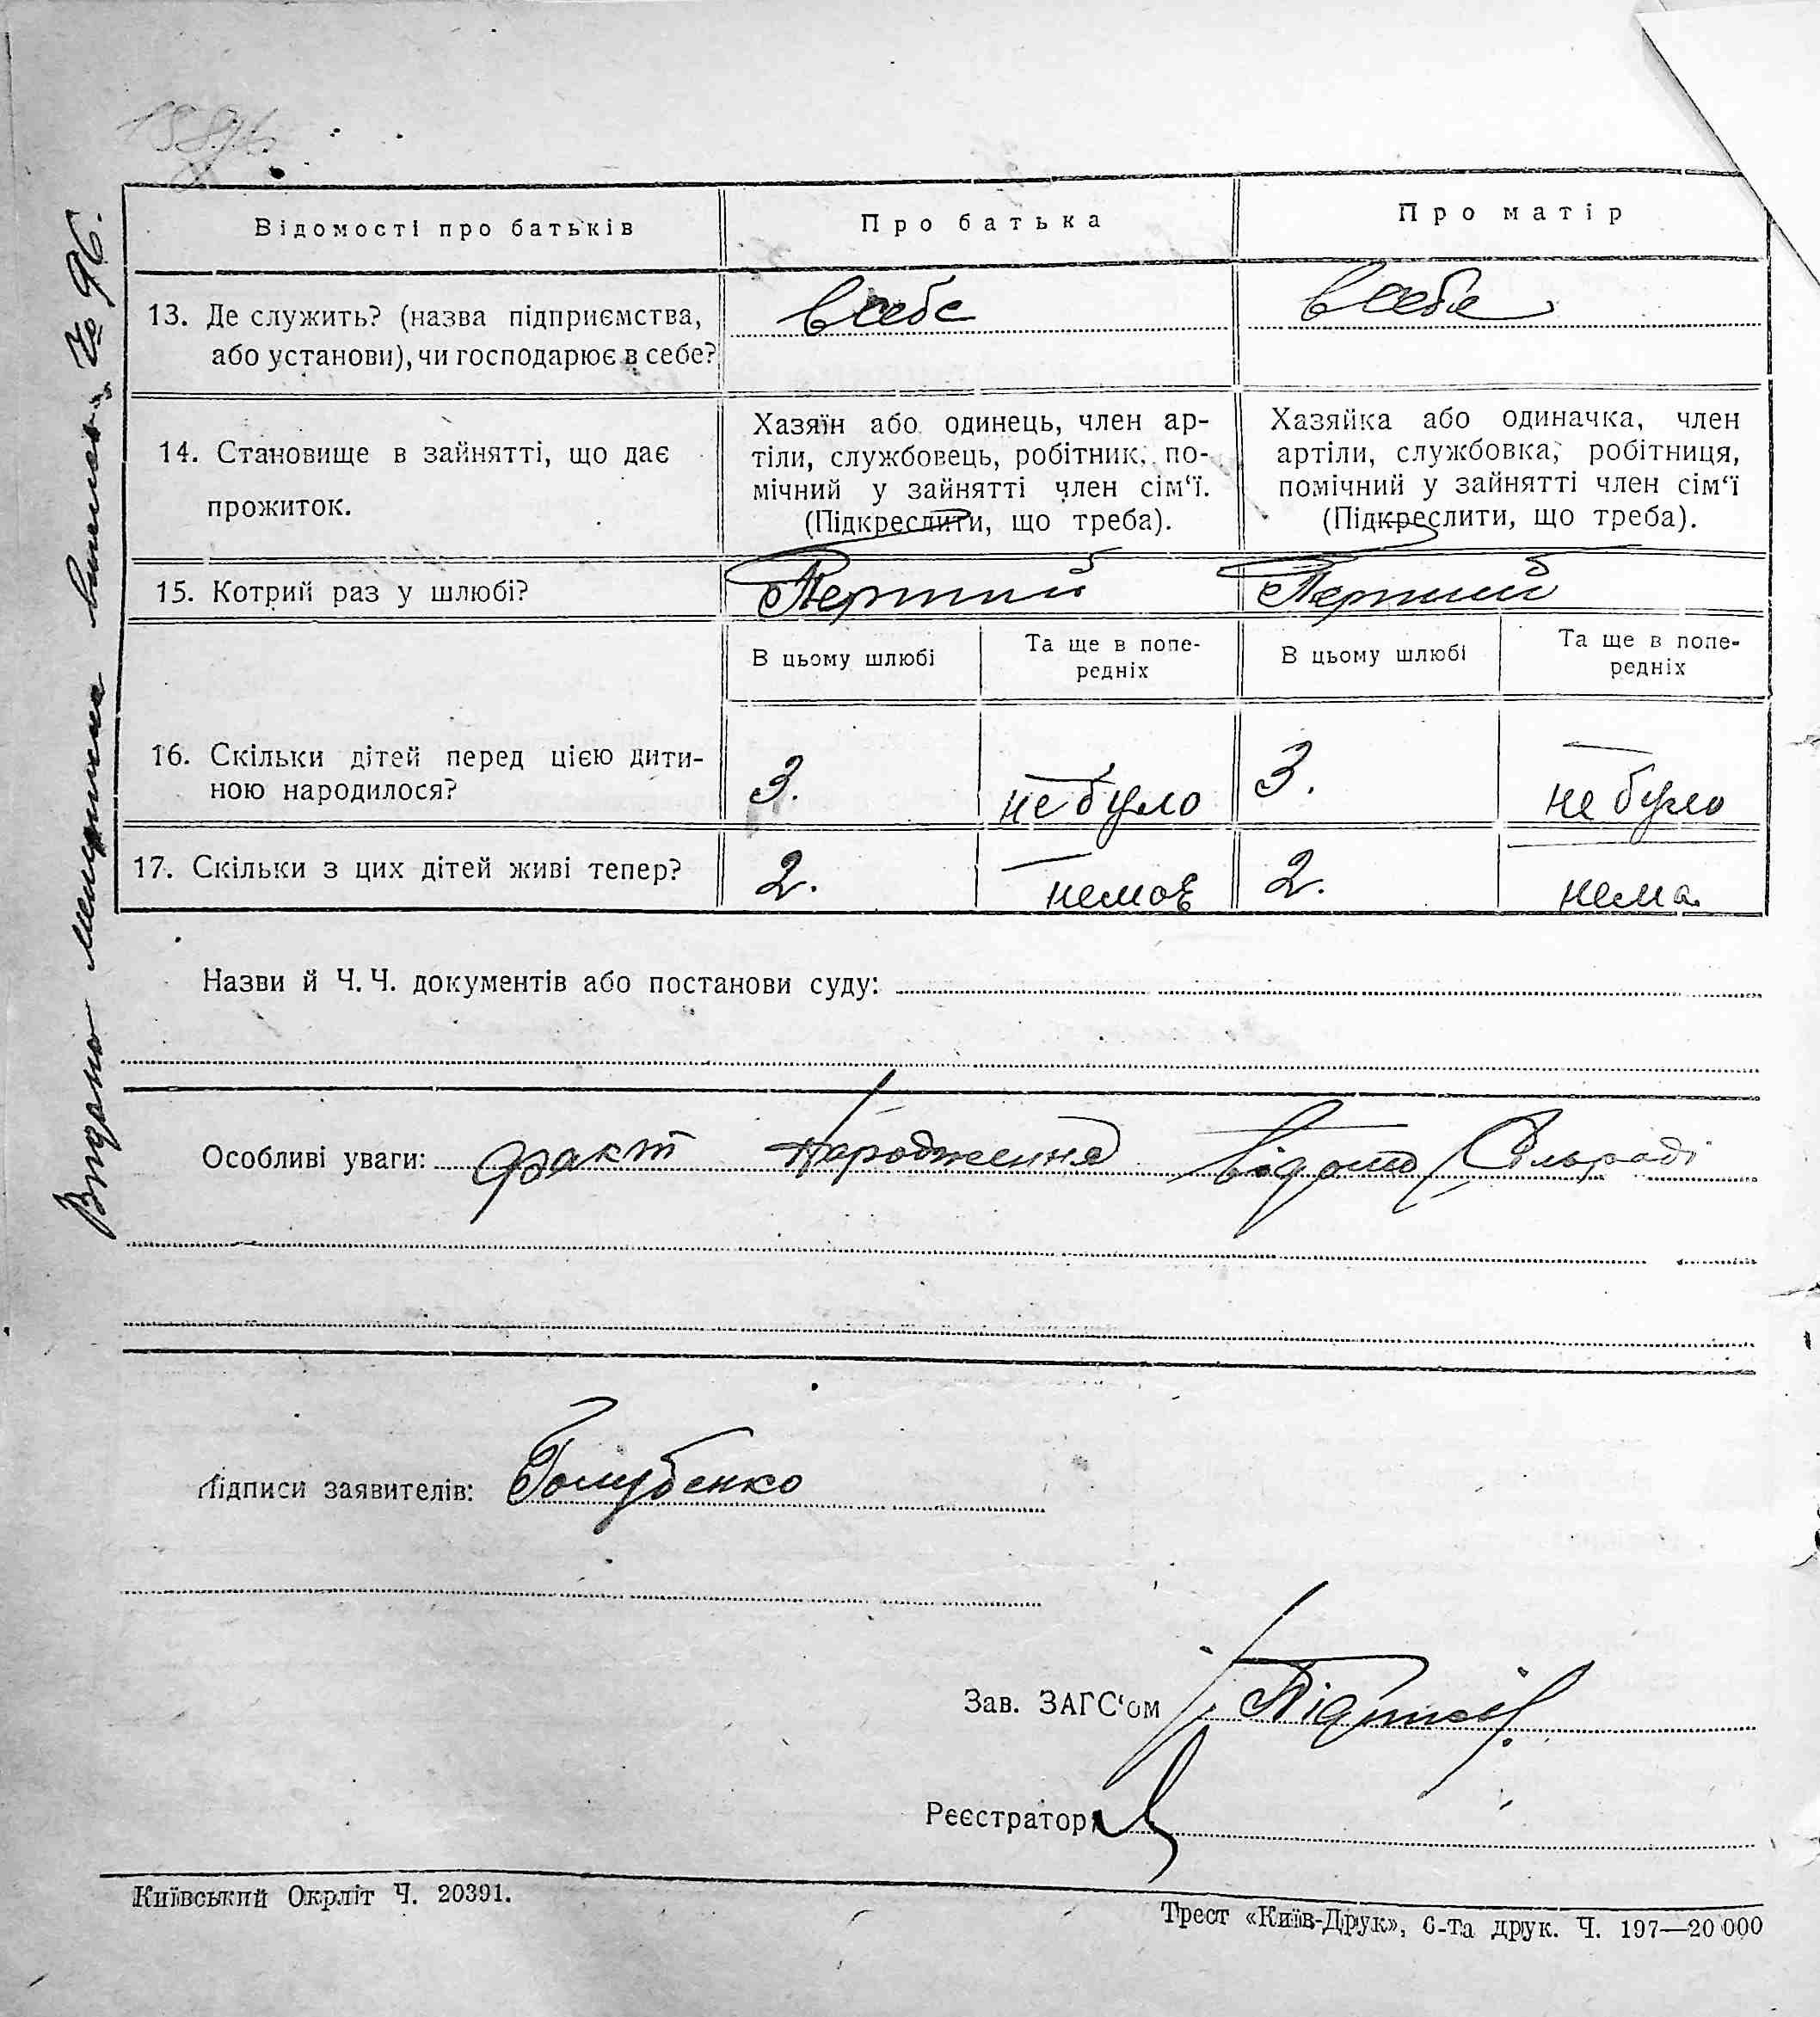 Видано метрична виписка № 96.
Відомості про батьків
Про батька
Про матір
13. Де служить? (назва підприємства,
або установи), чи господарює в себе?
в себе
в себе
14. Становище в зайнятті, що дає
прожиток.
Хазяїн або одинець, член ар-
тіли, службовець, робітник, по-
мічний у зайнятті член сім'ї.
(Підкреслити, що треба).
Хазяйка або одиначка, член
артіли, службовка, робітниця,
помічний у зайнятті член сім'ї
(Підкреслити, що треба).
15. Котрий раз у шлюбі?
Перший
Перший
В цьому шлюбі
Та ще в попе-
редніх
В цьому шлюбі
Та ще в попе-
редніх
16. Скільки дітей перед цією дити-
ною народилося?
3.
не було
3.
не було
17. Скільки з цих дітей живі тепер?
2.
немає
2.
нема
Назви й Ч. Ч. документів або постанови суду:
Особливі уваги: факт народження відомо Сільраді
Підписи заявителів: Голубенко
Зав. ЗАГС'ом
Реєстратор
Київський Окрліт Ч. 20391.
Трест «Київ-Друк», 6-та друк. Ч. 197—20 000